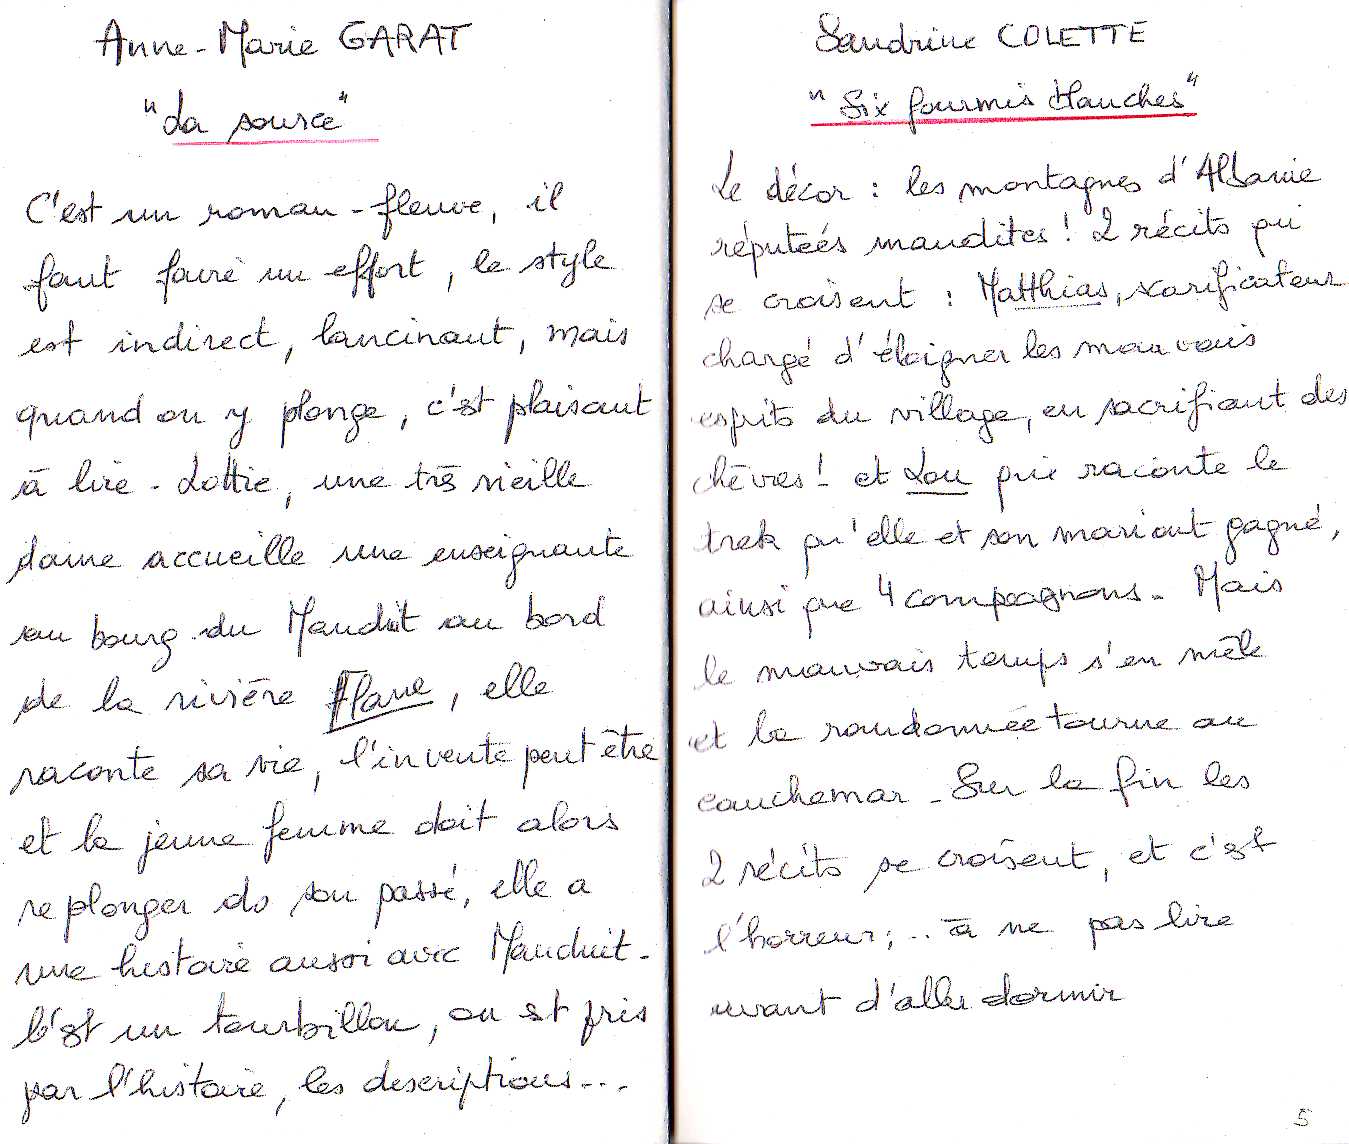 Anne-Marie GARAT
"La source"
C'est un roman-fleuve, il
faut faire un effort, le style
est indirect, lancinant, mais
quand on y plonge, c'est plaisant
à lire. Lottie, une très vieille
dame accueille une enseignante
au bourg du Mauduit au bord
de la rivière Flane, elle
raconte sa vie, l'invente peut être
et la jeune femme doit alors
replonger ds son passé, elle a
une histoire aussi avec Mauduit.
C'est un tourbillon, on est pris
par l'histoire, les descriptions...
Sandrine COLETTE
"Six fourmis blanches"
Le décor : les montagnes d'Albanie
réputées maudites ! 2 récits qui
se croisent : Matthias, scarificateur
chargé d'éloigner les mauvais
esprits du village, en sacrifiant des
chèvres ! et Lou qui raconte le
trek qu'elle et son mari ont gagné,
ainsi que 4 compagnons. Mais
le mauvais temps s'en mêle
et la randonnée tourne au
cauchemar. Sur la fin les
2 récits se croisent, et c'est
l'horreur;... à ne pas lire
avant d'aller dormir
5